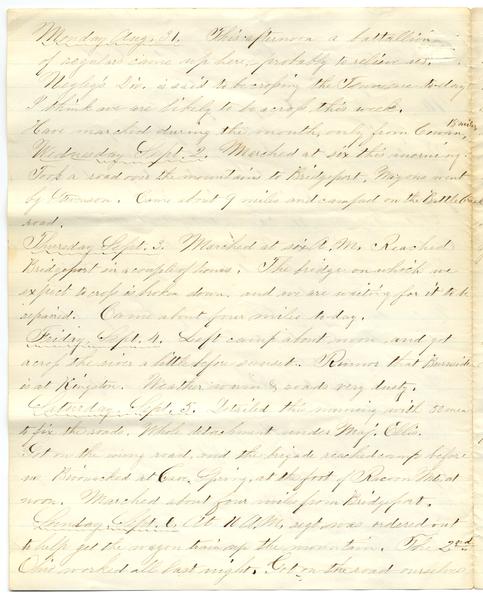 Monday Aug. 31. This afternoon a battallion
of regulars came up here, probably to relieve us.
Negley's Div. is said to be croping the Tennessee to-day
I think we are likely to be acrops this week.
Have marched during the month, only from Cowan,
Wednesday Sept. 2. Marched at six this morning.
Took a road over the mountains to Bridgeport. Wagons went
by Stevenson. Came about 9 miles and camped on the Battle Creek
road.
Thursday Sept. 3. Marched at six A.M. Reached
Bridgeport in a couple of hours. The bridge on which we
expect to crop is broken down, and we are waiting for it to be
repaired. Came about four miles to-day.
Friday Sept. 4. Left camp about noon and got
acrop the river a little before sunset. Rumor that Burnside
is at Kingston. Weather warm & roads very dusty.
Saturday Sept. 5. Detailed this morning with 50 men
to fix the roads. Whole detachment under Maj. Ellis.
Got on the wrong road, and the brigade reached camp before
us. Bivouacked at Cave Spring, at the foot of Racoon Mt. at
noon. Marched about four miles from Bridgeport.
Sunday Sept. 6. At 11 A.M. regt. was ordered out
to help get the wagon train up the mountain. The 2nd
Ohio worked all last night. Got on the road ourselves